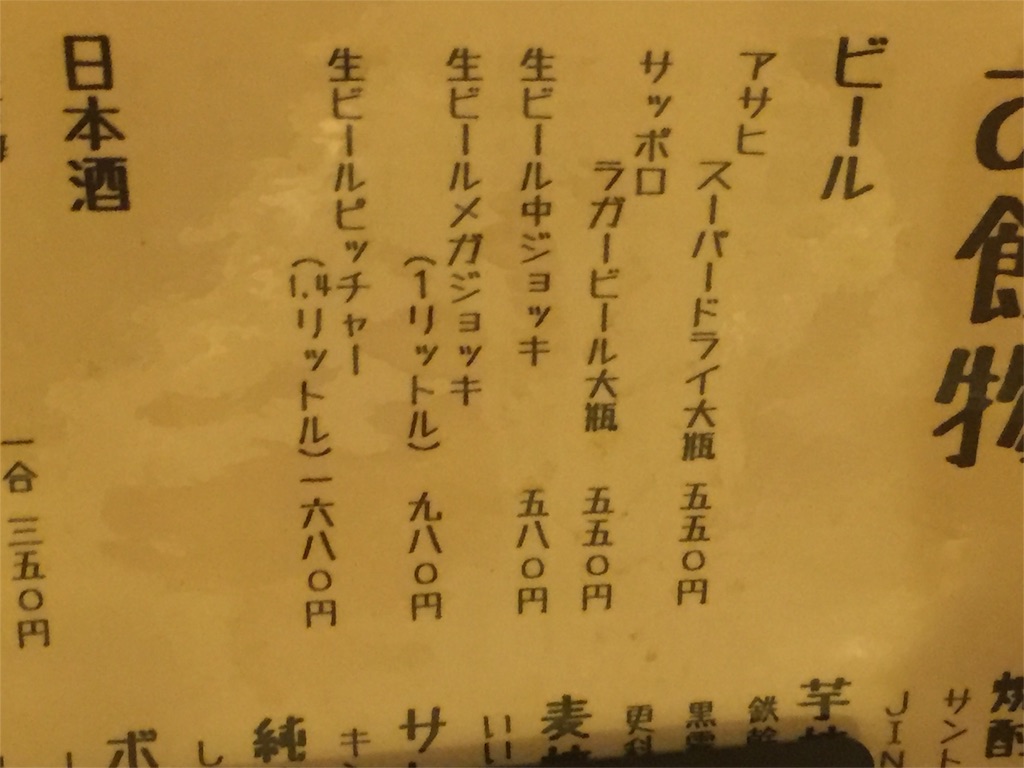 の飲物
ビール
アサヒ
スーパードライ大瓶 五五〇円
サッポロ
ラガービール大瓶 五五〇円
生ビール中ジョッキ 五八〇円
生ビールメガジョッキ
(1リットル) 九八〇円
生ビールピッチャー
(1.4リットル) 一六八〇円
日本酒
一合 三五〇円
焼酎
サント
JIN
芋
鉄幹
黒雲
更科
麦
いい
サ
キン
純
し
ボ